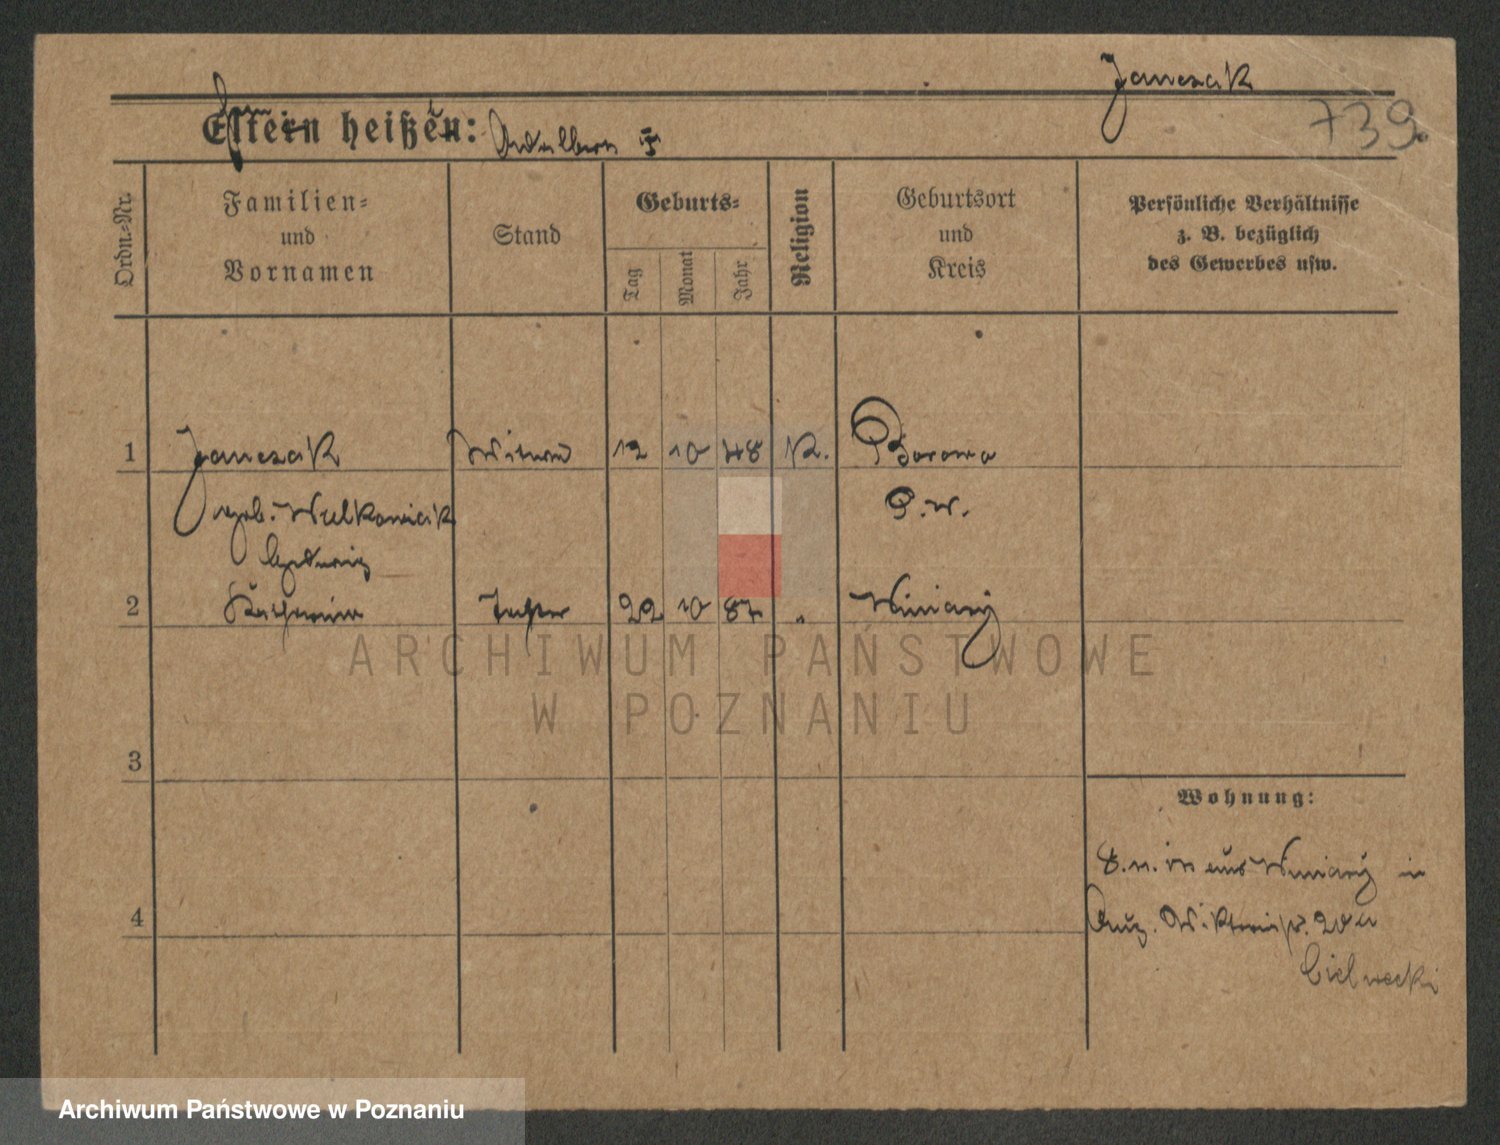 Janczak
739.
Eltern heißen: Adalbert †
Ordn.=Nr.
Familien=
und
Vornamen
Stand
Geburts=
Tag
Monat
Jahr
Religion
Geburtsort
und
Kreis
Persönliche Verhältnisse
z. B. bezüglich
des Gewerbes usw.
1 Janczak Witwe 12 10 48 K. Borowo
geb. Walkowiak P. W.
Hedwig
2 Katharina Tochter 22 10 87 " Winiary
ARCHIWUM PAŃSTWOWE
W POZNANIU
3
Wohnung:
aus Winiary in
4
Cielnecki
Archiwum Państwowe w Poznaniu